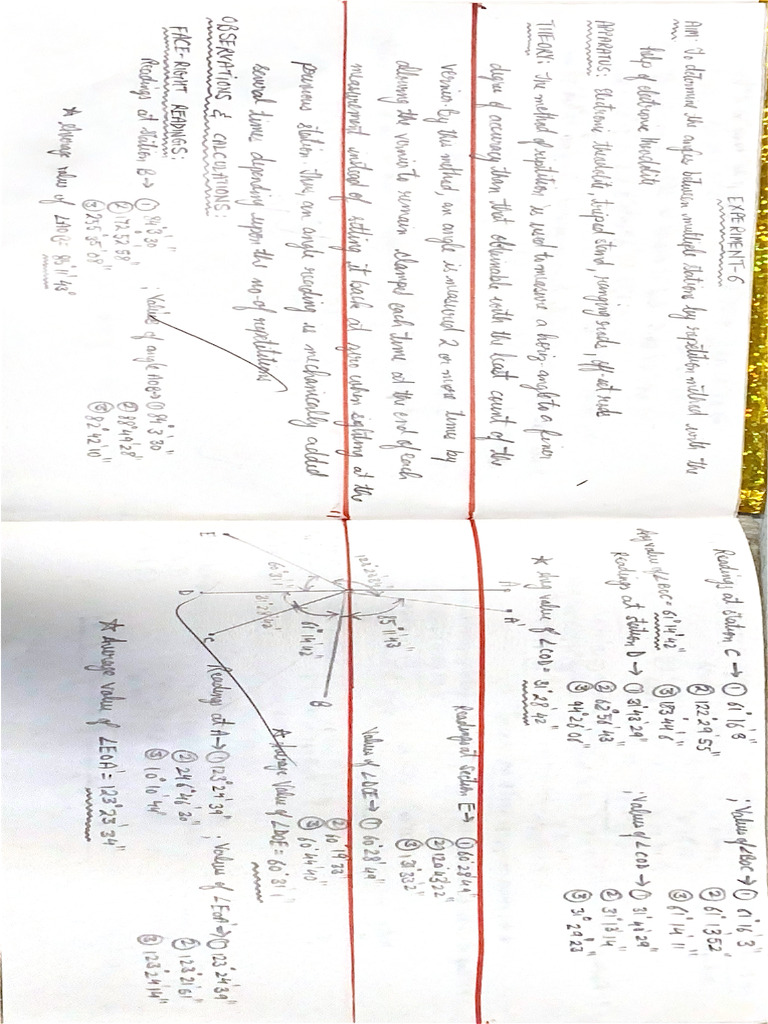 EXPERIMENT-6
AIM: To determine the angles between multiple stations by repetition method with the
help of electronic theodolite
APPARATUS: Electronic theodolite, tripod stand, ranging rods, offset rods
THEORY: The method of repetition is used to measure a horiz. angle to a finer
degree of accuracy than that obtainable with the least count of the
vernier. By this method, an angle is measured 2 or more times by
allowing the vernier to remain clamped each time at the end of each
measurement instead of setting it back at zero when sighting at the
previous station. Thus, an angle reading is mechanically added
several times depending upon the no. of repetitions
OBSERVATIONS & CALCULATIONS:
FACE-RIGHT READINGS:
Readings at station B → ① 84°3'30" ; Values of angle AOB → ① 84°3'30"
② 172°52'58" ② 88°49'28"
③ 255°35'08" ③ 82°42'10"
* Average value of
Readings at station C → ① 61°16'3" ; Values of ∠BOC → ① 61°16'3"
② 122°29'55" ② 61°13'52"
③ 183°44'6" ③ 61°14'11"
Avg value of ∠BOC = 61°14'42"
Readings at station D → ① 31°43'29" ; Values of ∠COD → ① 31°43'29"
② 62°56'43" ② 31°13'14"
③ 94°26'06" ③ 31°29'23"
* Avg value of ∠COD = 31°28'42"
A A'
123°23'34"
85°11'43"
60°31'1"
31°28'42"
61°14'42"
B
C
D
E
Readings at Section E → ① 60°28'49"
② 120°48'22"
③ 181°33'2"
Values of ∠DOE → ① 60°28'49"
② 60°19'33"
③ 60°44'40"
* Average Value of ∠DOE = 60°31'1"
Readings at A → ① 123°24'39" ; Values of ∠EOA' → ① 123°24'39"
② 246°46'30" ② 123°21'51"
③ 10°10'44" ③ 123°24'14"
* Average value of ∠EOA' = 123°23'34"